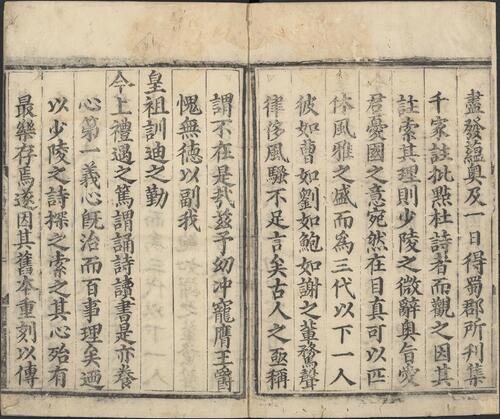 盡發蘊奥及一日得蜀郡所刋集
千家註批㸃杜詩者而觀之因其
註索其理則少陵之微辭奥旨愛
君憂國之意宛然在目真可以匹
休風雅之盛而爲三代以下一人
彼如曹如劉如鮑如謝之輩騖聲
律侈風騷不足言矣古人之亟稱
謂不在是㢤兹予幼冲寵膺王爵
愧無德以副我
皇祖訓迪之勤
今上禮遇之篤謂誦詩讀書是亦養
心第一義心旣治而百事理矣廼
以少陵之詩探之索之其心殆有
最樂存焉遂因其舊本重刻以傳